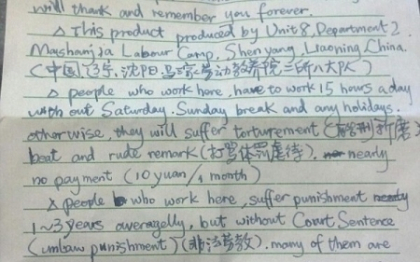 will thank and remember you forever.
△ This product produced by Unit 8, Department 2,
Mashanjia Labour Camp, Shen yang, Liaoning, China.
(中国,辽宁,沈阳,马三家劳动教养院二所八大队)
△ people who work here, have to work 15 hours a day
with out Saturday, Sunday break and any holidays.
otherwise, they will suffer torturement
beat and rude remark (打骂体罚虐待). nearly
no payment (10 yuan/1 month)
△ people who work here, suffer punishment
1~3 years averagelly, but without Court Sentence
(unlaw punishment) (非法劳教). many of them are